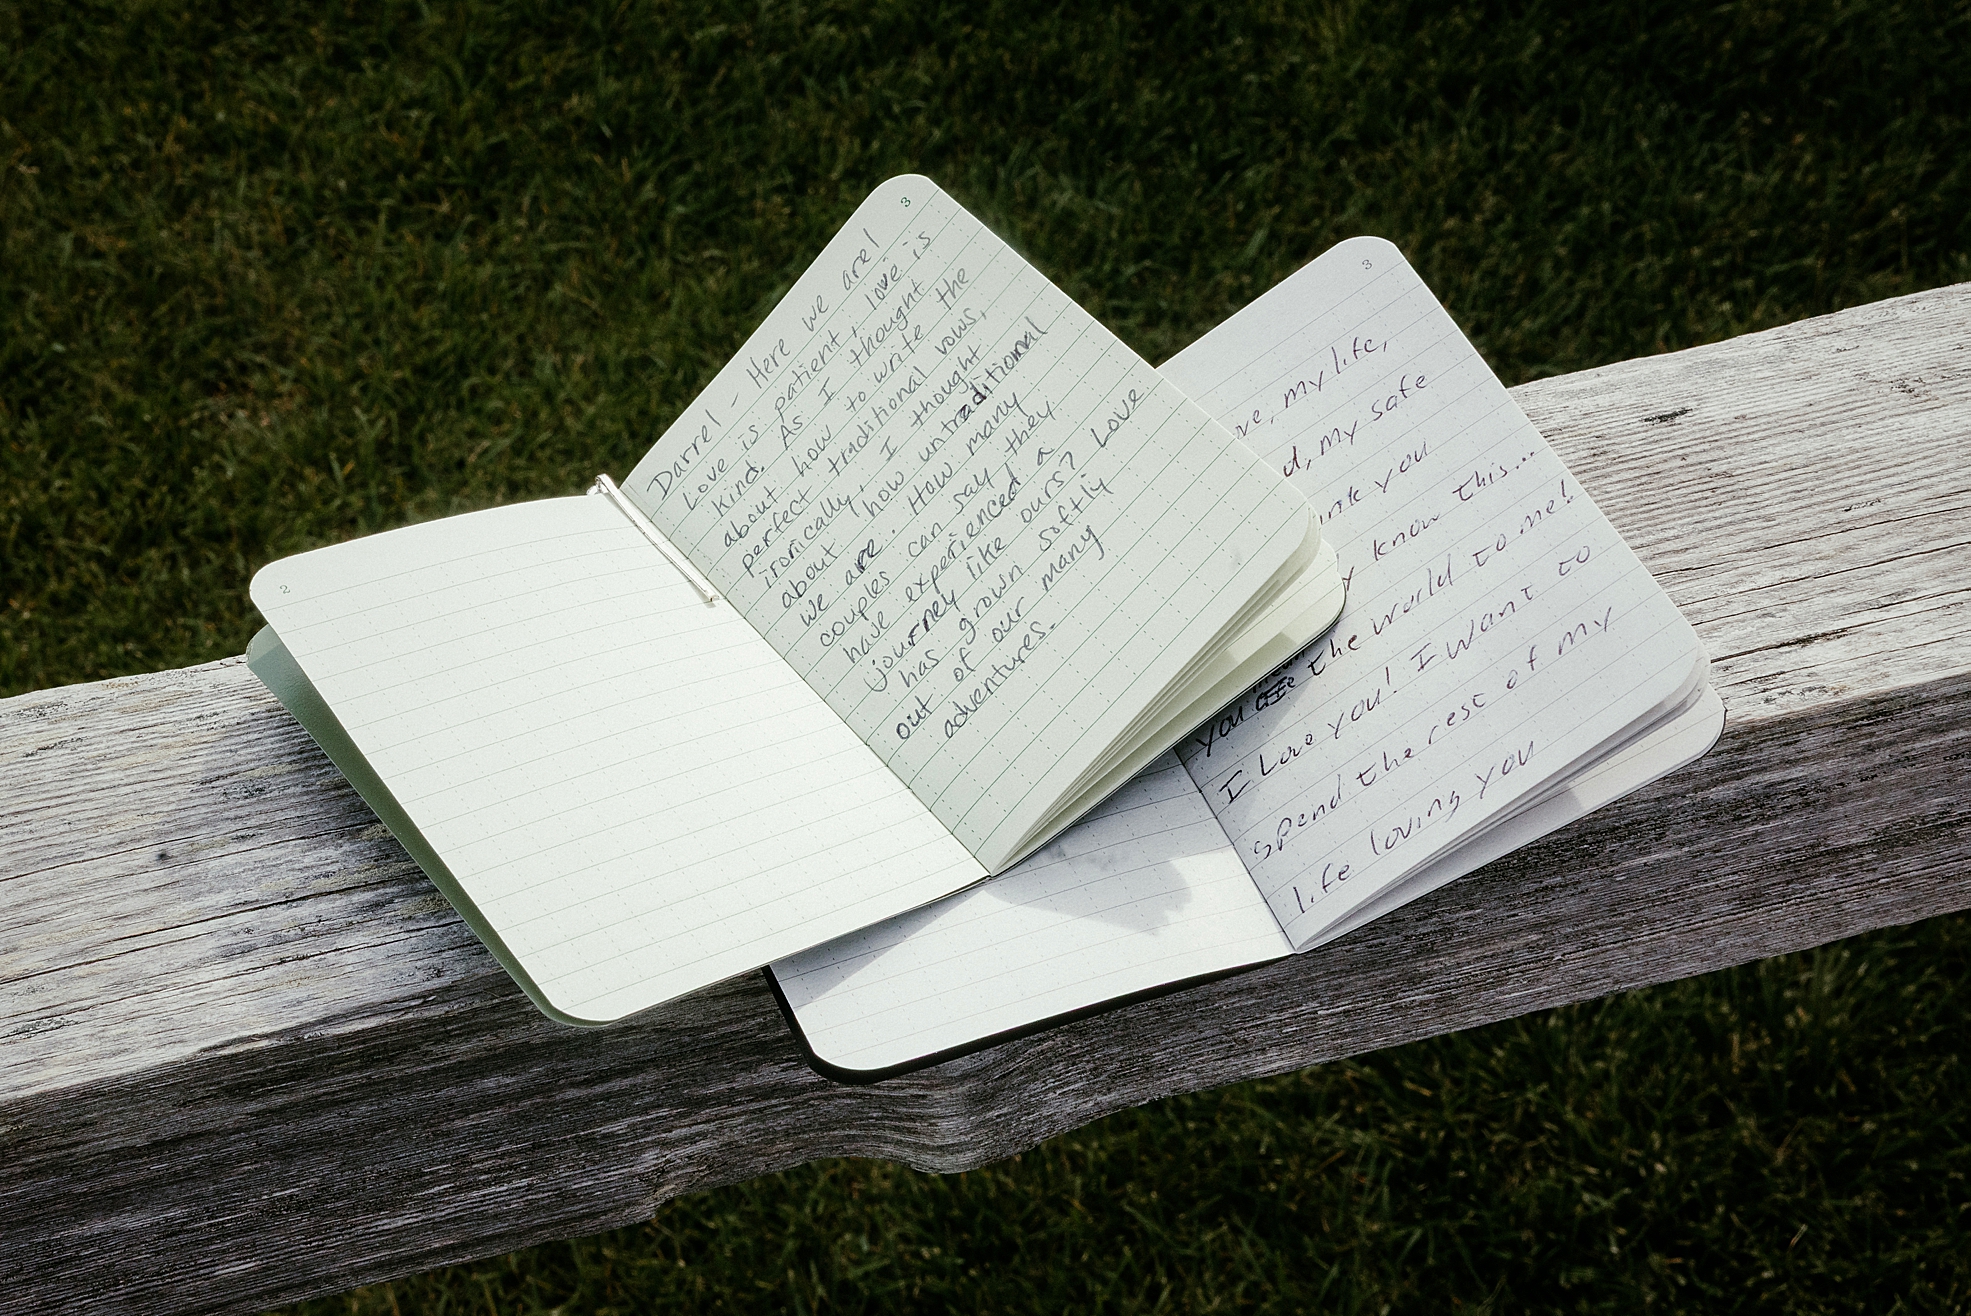 2
3
Darrel - Here we are!
Love is patient, love is
kind. As I thought
about how to write the
perfect traditional vows,
ironically, I thought
about how untraditional
we are. How many
couples can say they
have experienced a
journey like ours? Love
has grown softly
out of our many
adventures.
3
my life,
my safe
you
know this...
you are the world to me!
I Love you! I want to
spend the rest of my
life loving you